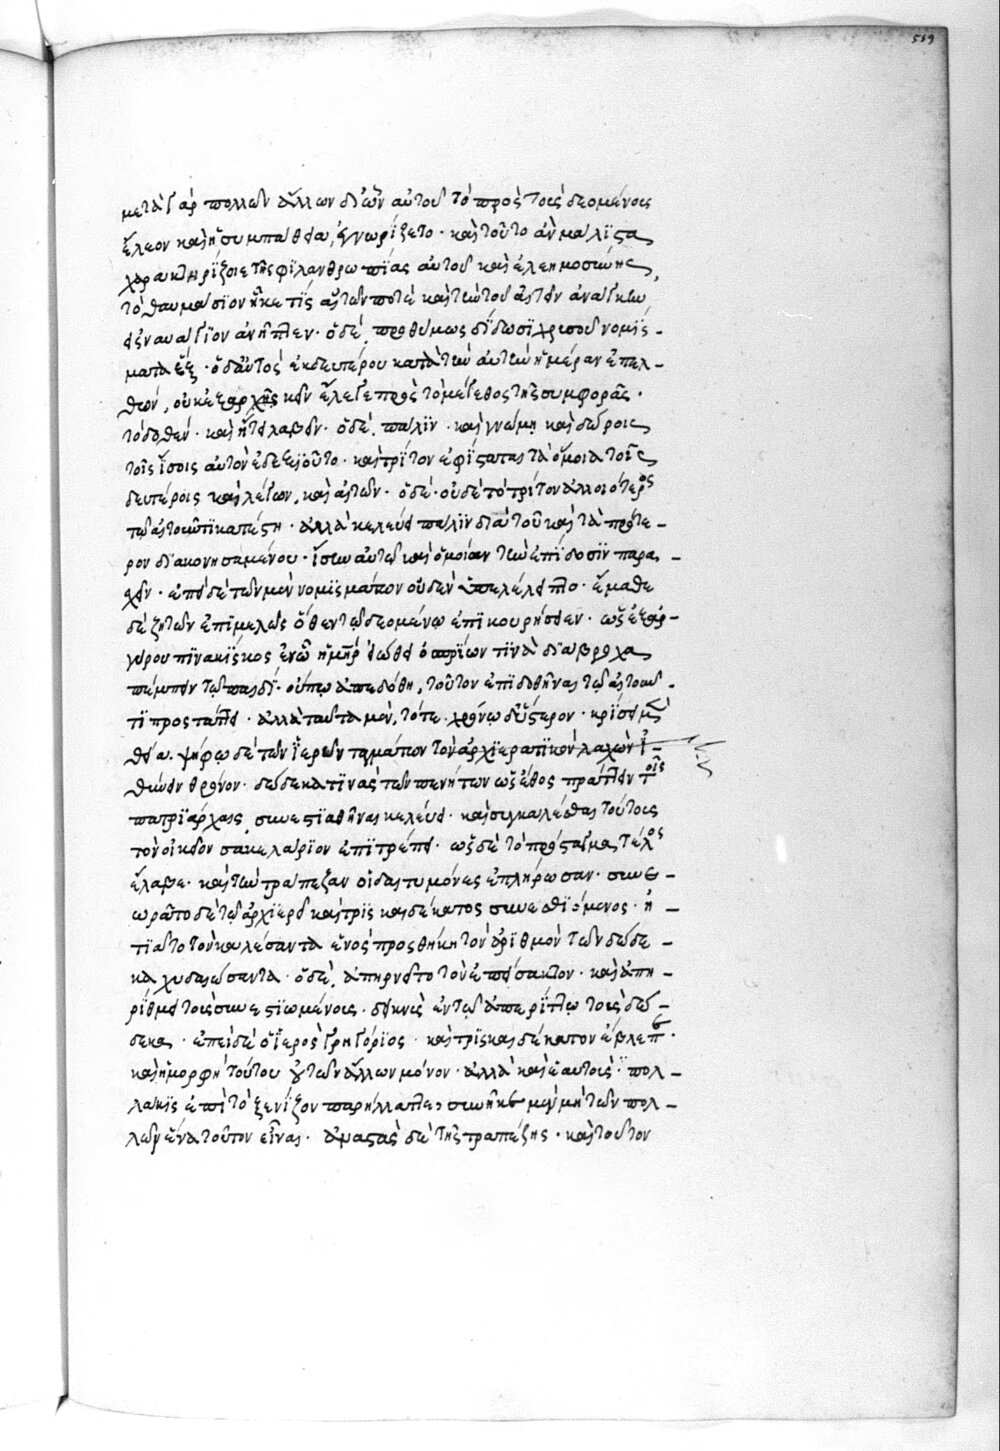 519
μετὰ γὰρ πολλῶν ἄλλων δι' ὧν αὐτοῦ τὸ πρὸς τοὺς δεομένους
ἔλεον καὶ ἡ συμπάθεια ἐγνωρίζετο· καὶ τοῦτο ἂν μάλιστα
χαρακτηρίζοι τῆς φιλανθρωπίας αὐτοῦ καὶ ἐλεημοσύνης
τὸ θαυμάσιον ἧκέ τις αἰτῶν ποτὲ καὶ τὴν τοῦ αἰτεῖν ἀνάγκην
εἰς ναυάγιον ἀνῆπτεν· ὁ δὲ, προθύμως δίδωσι χρυσοῦ νομίσ-
ματα ἕξ· ὁ δ' αὐτὸς ἐκ δευτέρου κατὰ τὴν αὐτὴν ἡμέραν ἐπελ-
θὼν, οὐκ ἐξαρκεῖν ἔλεγε πρὸς τὸ μέγεθος τῆς συμφορᾶς·
τὸ δοθέν· καὶ ᾔτει λαβεῖν· ὁ δὲ, πάλιν· καὶ γνώμῃ καὶ δώροις
τοῖς ἴσοις αὐτὸν ἐδεξιοῦτο· καὶ τρίτον ἐφίσταται τὰ ὅμοια τοῖς
δευτέροις καὶ λέγων, καὶ αἰτῶν· ὁ δὲ· οὐδὲ τὸ τρίτον ἀλλοιότερος
τῷ αἰτοῦντι κατέστη· ἀλλὰ κελεύει πάλιν διὰ τοῦ καὶ τὰ πρότε-
ρον διακονησαμένου· ἴσην αὐτῷ καὶ ὁμοίαν τὴν ἐπίδοσιν παρα-
χεῖν· ἐπεὶ δὲ τῶν μὲν νομισμάτων οὐδὲν ὑπελέλειπτο· ἔμαθε
δὲ ζητῶν ἐπιμελῶς ὅθεν τῷ δεομένῳ ἐπικουρήσειεν· ὡς ἐξ ἀρ-
γύρου πινακίσκος ἐν ᾧ ἡ μήτηρ εἰώθει ὀσπρίων τινὰ διάβροχα
πέμπειν τῷ παιδί· οὔπω ἀπεδόθη, τοῦτον ἐπιδοθῆναι τῷ αἰτοῦν-
τι προστάττει· ἀλλὰ ταῦτα μὲν, τότε· χρόνῳ δ' ὕστερον· κρίσει μὲν
θεία· ψήφῳ δὲ τῶν ἱερῶν ταγμάτων τὸν ἀρχιερατικὸν λαχὼν ἰ-
θύνειν θρόνον· δώδεκά τινας τῶν πενήτων ὡς ἔθος πράττειν τοῖς
πατριάρχαις, συνεστιαθῆναι κελεύει· καὶ συγκαλέσαι τούτους
τὸν οἰκεῖον σακελάριον ἐπιτρέπει· ὡς δὲ τὸ πρόσταγμα, τέλος
ἔλαβε· καὶ τὴν τράπεζαν οἱ δαιτυμόνες ἐπλήρωσαν· συνε-
ωρᾶτο δὲ τῷ ἀρχιερεῖ καὶ τρὶς καὶ δέκατος συνεσθιόμενος· ᾐ-
τιᾶτο τὸν καλέσαντα ἑνὸς προσθήκῃ τὸν ἀριθμὸν τῶν δώδε-
κα χυδαιώσαντα· ὁ δὲ, ἀπηρνεῖτο τὸν ἐπείσακτον· καὶ ἀπη-
ρίθμει τοὺς συνεστιωμένους· δεικνὺς ἐν τῷ ἀπερίττῳ τοὺς δώ-
δεκα· ἐπεὶ δὲ ὁ ἱερὸς Γρηγόριος· καὶ τρὶς καὶ δέκατον ἔβλεπε·
καὶ ἡ μορφὴ τούτου ἐκ τῶν ἄλλων μόνον· ἀλλὰ καὶ ἑαυτοῖς· πολ-
λάκις ἐπὶ τὸ ξενίζον παρήλλαττε, συνῆκε μὲν μὴ τῶν πολ-
λῶν ἕνα τοῦτον εἶναι· ἀναστὰς δὲ τῆς τραπέζης· καὶ τοῦτον